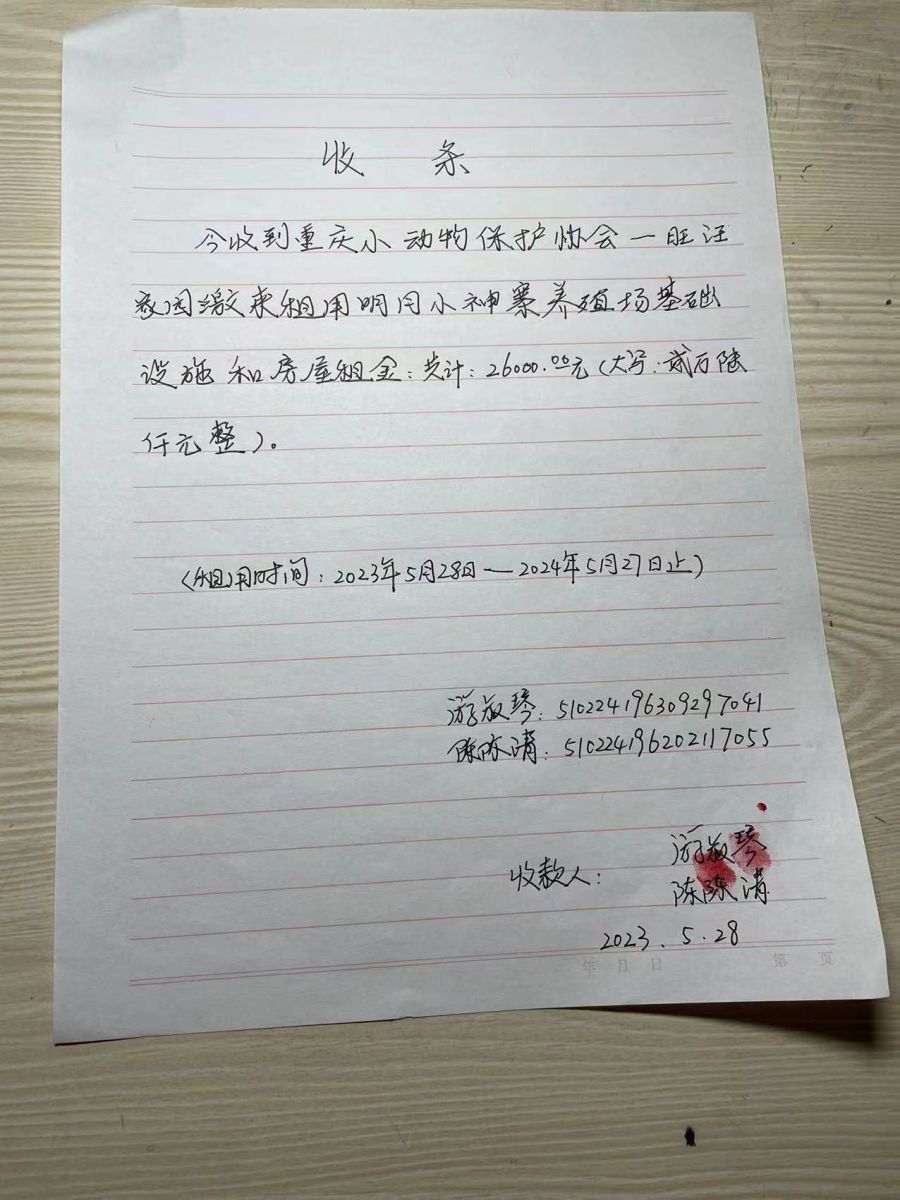 收 条
今收到重庆小动物保护协会一旺汪
家园缴来租用明月小神寨养殖场基础
设施和房屋租金:共计:26000.00元(大写:贰万陆
仟元整)。
(租用时间:2023年5月28日—2024年5月27日止)
游敏琴:510224196309297041
陈陈清:510224196202117055
收款人: 游敏琴
陈陈清
2023.5.28
年 月 日 第 页